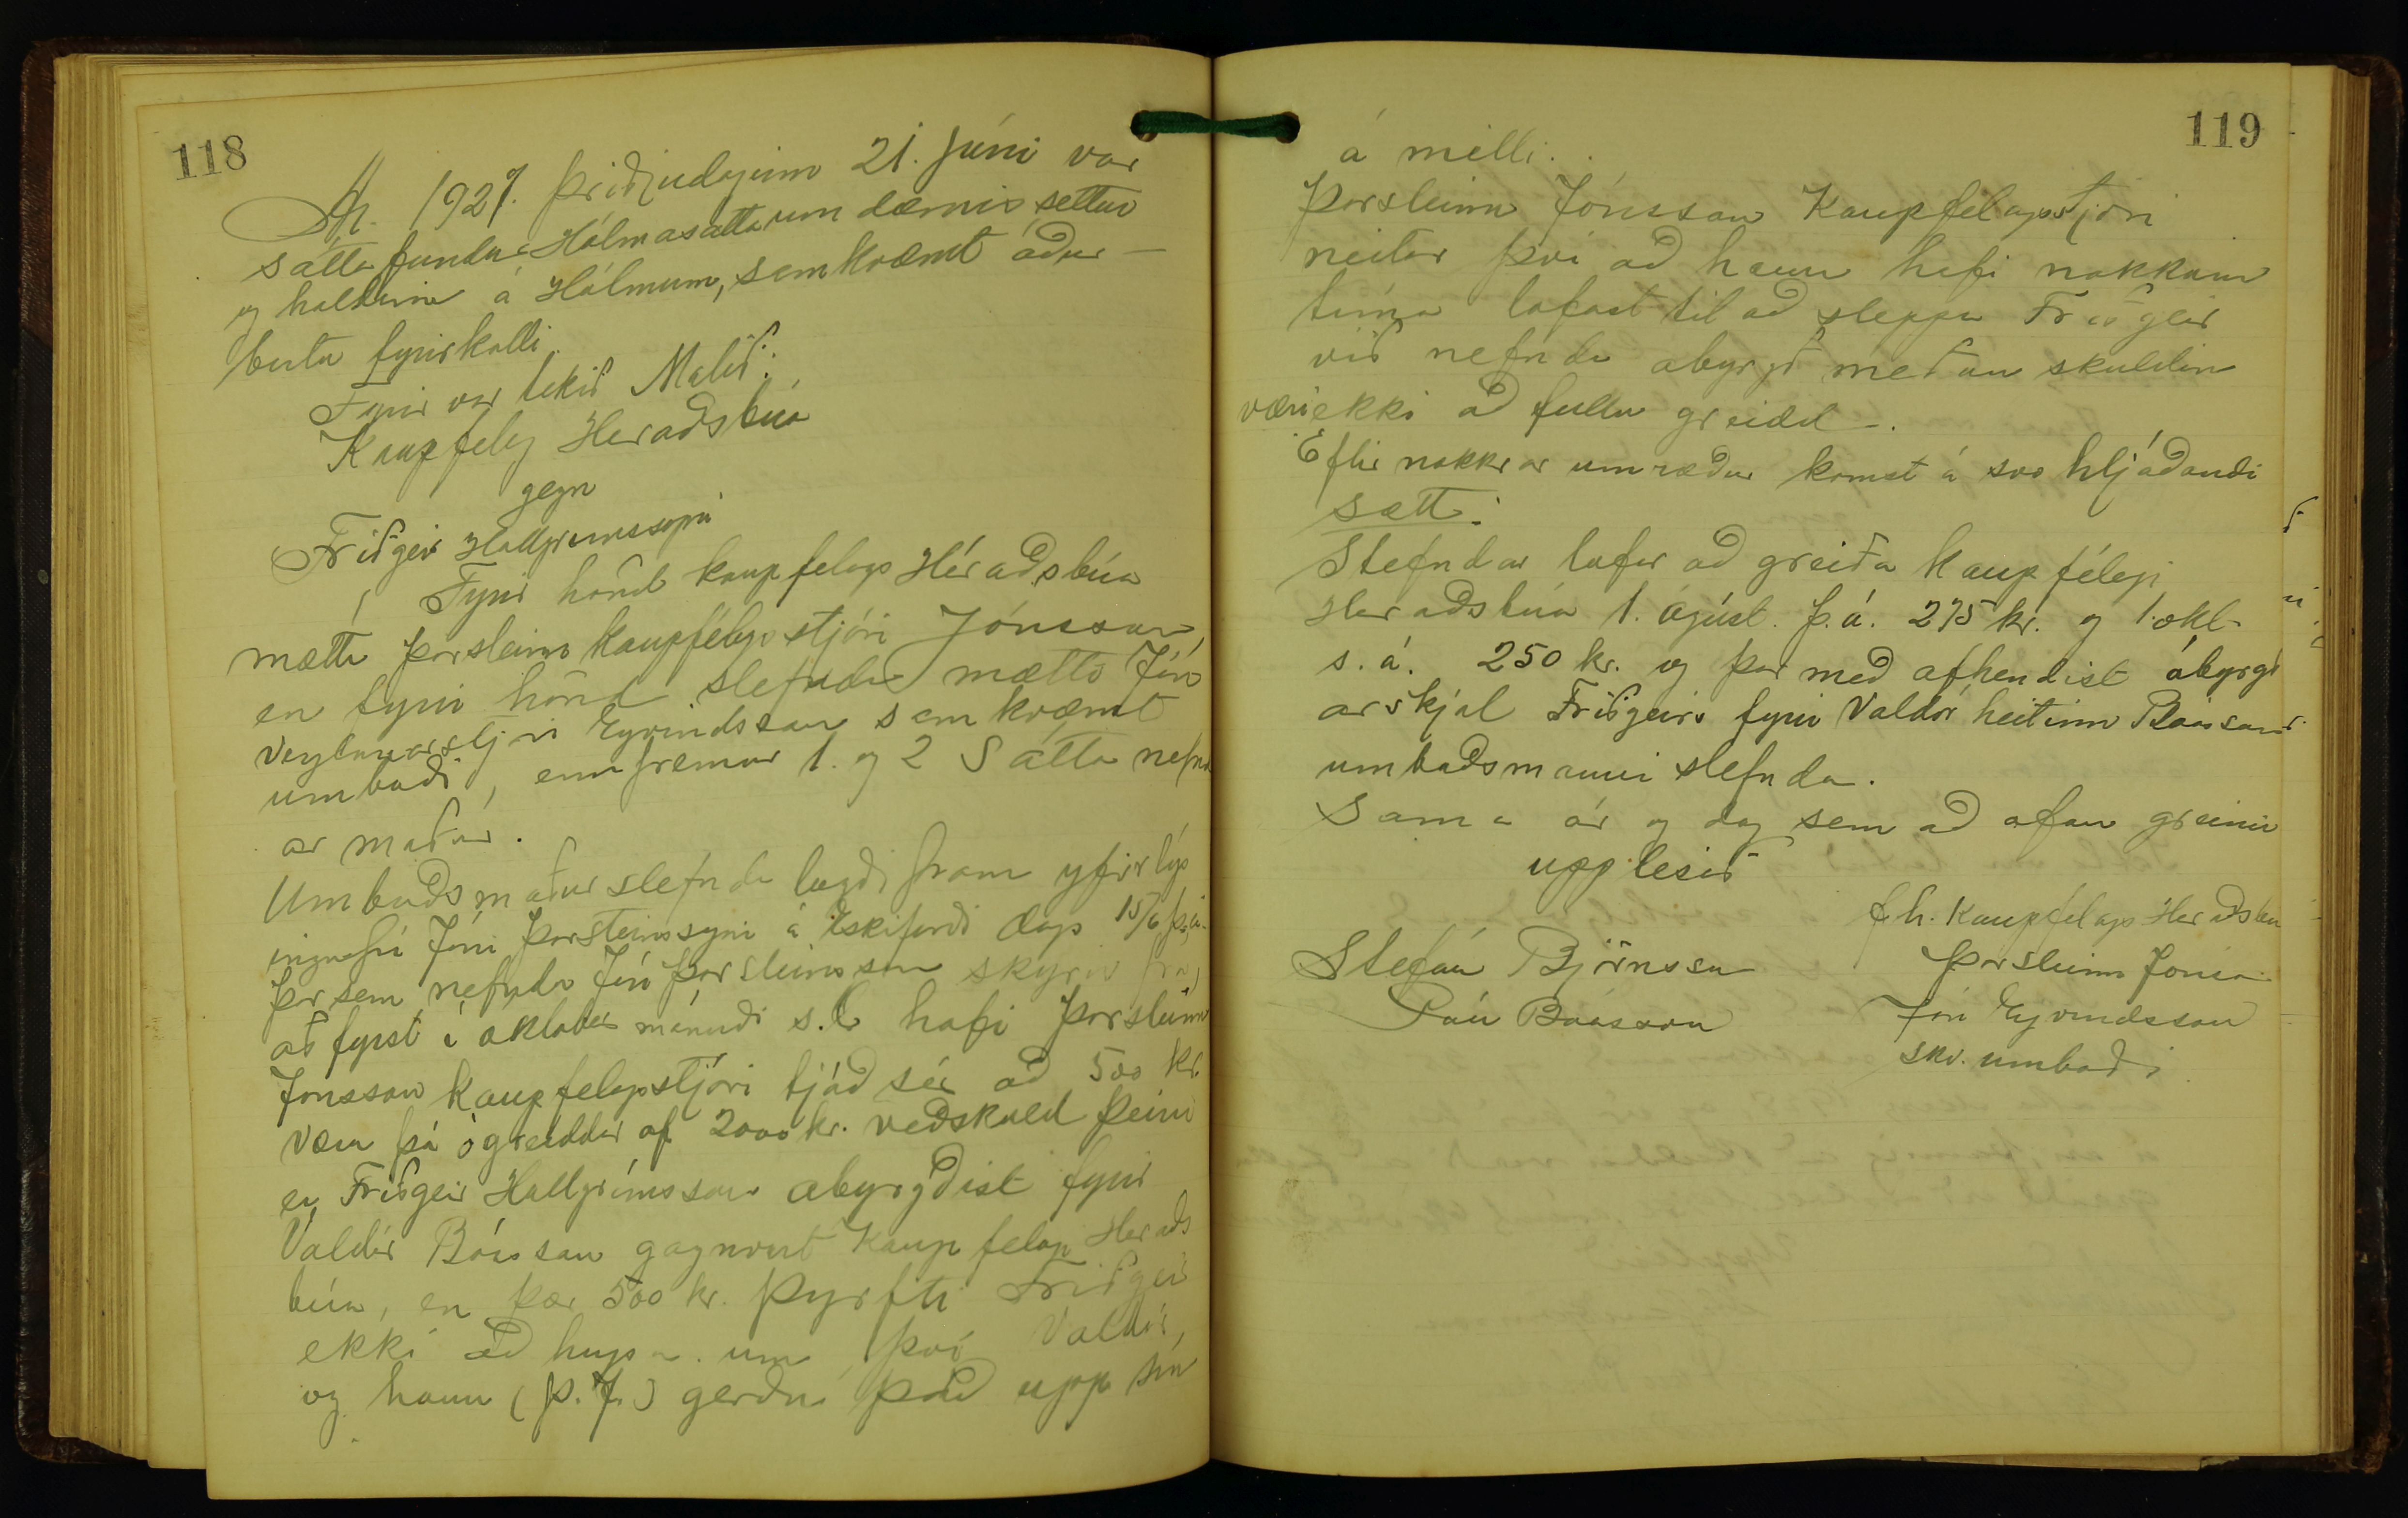 118
Ár 1927. þriðjudaginn 21. júní var
sáttafundur Hólmasáttaumdæmis settur
og haldinn á Hólmum, samkvæmt áður
birtu fyrirkalli.
Fyrir var tekið Málið:
Kaupfelag Heraðsbúa
gegn
Friðgeir Hallgrimssyni
Fyrir hönd kaupfelags Héraðsbúa
mætti Þorsteinn kaupfélagsstjóri Jónsson,
en fyrir hönd stefnda mætti Jón
verslunarstjóri Eyvindsson samkvæmt
umboði, ennfremur 1. og 2 Sátta nefnd
ar maður.
Umboðsmaður stefnda lagði fram yfirlýs
ingu frá Jóni Þorsteinssyni á Eskifirði dags 15/6 þ.á.
þar sem nefndur Jón Þorsteinsson skýrir frá,
að fyrst í október mánuði s.l. hafi Þorsteinn
Jonsson kaupfelagsstjóri tjáð sér að 500 kr.
væru þá ógreiddar af 2000 kr. veðskuld þeirri
er Friðgeir Hallgrímsson abyrgðist fyrir
Valdór Bóasson gagnvart Kaupfelagi Heraðs
búa, en þær 500 kr. þyrfti Friðgeir
ekki að hugsa um því Valdór,
og hann (Þ.J.) gerðu það upp sín
119
á milli.
Þorsteinn Jónsson Kaupfélagsstjóri
neitar því að hann hafi nokkurn
tíma lofast til að sleppa Friðgeir
við nefnda abyrgð meðan skuldin
væri ekki að fullu greidd -.
Eftir nokkrar umræður komst á svo hljóðandi
sætt:
Stefndur lofar að greiða kaupfélagi
Heraðsbúa 1. ágúst. þ.á. 275 kr. og 1. okt.
s.á. 250 kr. og þar með afhendist ábyrgð
arskjal Friðgeirs fyrir Valdór heitinn Bóasson
umboðsmanni stefnda.
Sama ár og dag sem að ofan greinir
upplesið
f.h. Kaupfélags Heraðsbúa
Stefán Björnsson Þorsteinn Jónsson
Páll Bóasson Jón Eyvindsson
skv. umboði